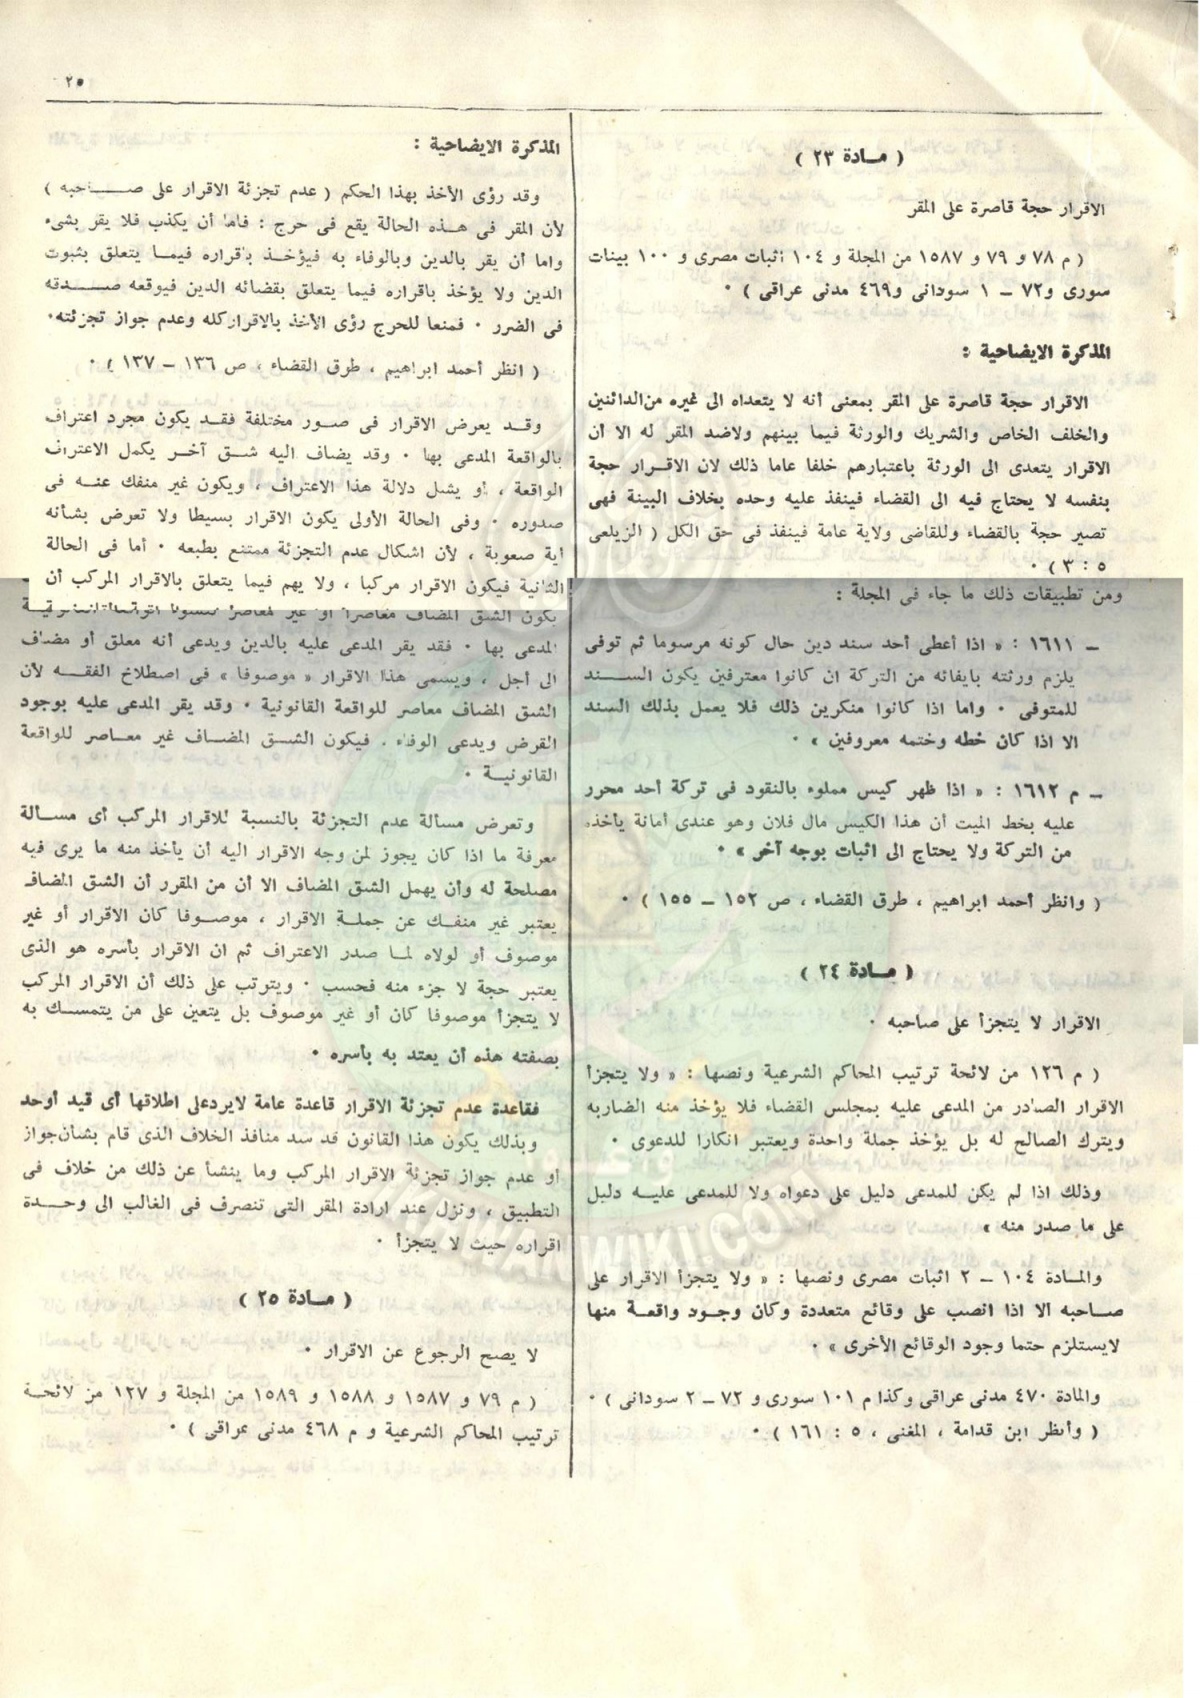 ٢٥
( مادة ٢٣ )
الاقرار حجة قاصرة على المقر
( م ٧٨ و ٧٩ و ١٥٨٧ من المجلة و ١٠٤ اثبات مصرى و ١٠٠ بينات
سورى و٧٢ – ١ سودانى و٤٦٩ مدنى عراقى ) ٠
المذكرة الايضاحية :
الاقرار حجة قاصرة على المقر بمعنى أنه لا يتعداه الى غيره من الدائنين
والخلف الخاص والشريك والورثة فيما بينهم ولاضد المقر له الا أن
الاقرار يتعدى الى الورثة باعتبارهم خلفا عاما ذلك لان الاقرار حجة
بنفسه لا يحتاج فيه الى القضاء فينفذ عليه وحده بخلاف البينة فهى
تصير حجة بالقضاء وللقاضى ولاية عامة فينفذ فى حق الكل ( الزيلعى
٥ : ٣ ) ٠
ومن تطبيقات ذلك ما جاء فى المجلة :
– ١٦١١ : « اذا أعطى أحد سند دين حال كونه مرسوما ثم توفى
يلزم ورثته بايفائه من التركة ان كانوا معترفين بكون السند
للمتوفى ٠ واما اذا كانوا منكرين ذلك فلا يعمل بذلك السند
الا اذا كان خطه وختمه معروفين » ٠
– م ١٦١٢ : « اذا ظهر كيس مملوء بالنقود فى تركة أحد محرر
عليه بخط الميت أن هذا الكيس مال فلان وهو عندى أمانة يأخذه
من التركة ولا يحتاج الى اثبات بوجه آخر » ٠
( وانظر أحمد ابراهيم ، طرق القضاء ، ص ١٥٢ – ١٥٥ ) ٠
( مادة ٢٤ )
الاقرار لا يتجزأ على صاحبه ٠
( م ١٢٦ من لائحة ترتيب المحاكم الشرعية ونصها : « ولا يتجزأ
الاقرار الصادر من المدعى عليه بمجلس القضاء فلا يؤخذ منه الضاربه
ويترك الصالح له بل يؤخذ جملة واحدة ويعتبر انكارا للدعوى ٠
وذلك اذا لم يكن للمدعى دليل على دعواه ولا للمدعى عليه دليل
على ما صدر منه »
والمادة ١٠٤ – ٢ اثبات مصرى ونصها : « ولا يتجزأ الاقرار على
صاحبه الا اذا انصب على وقائع متعددة وكان وجود واقعة منها
لايستلزم حتما وجود الوقائع الأخرى » ٠
والمادة ٤٧٠ مدنى عراقى وكذا م ١٠١ سورى و ٧٢ – ٢ سودانى ) ٠
( وأنظر ابن قدامة ، المغنى ، ٥ : ١٦١ ) ٠
المذكرة الايضاحية :
وقد رؤى الأخذ بهذا الحكم ( عدم تجزئة الاقرار على صاحبه )
لأن المقر فى هذه الحالة يقع فى حرج : فاما أن يكذب فلا يقر بشىء
واما أن يقر بالدين وبالوفاء به فيؤخذ باقراره فيما يتعلق بثبوت
الدين ولا يؤخذ باقراره فيما يتعلق بقضائه الدين فيوقعه صدقه
فى الضرر ٠ فمنعا للحرج رؤى الأخذ بالاقرار كله وعدم جواز تجزئته٠
( انظر أحمد ابراهيم ، طرق القضاء ، ص ١٣٦ – ١٣٧ ) ٠
وقد يعرض الاقرار فى صور مختلفة فقد يكون مجرد اعتراف
بالواقعة المدعى بها ٠ وقد يضاف اليه شق آخر يكمل الاعتراف
الواقعة ، أو يشل دلالة هذا الاعتراف ، ويكون غير منفك عنه فى
صدوره ٠ وفى الحالة الأولى يكون الاقرار بسيطا ولا تعرض بشأنه
أية صعوبة ، لأن اشكال عدم التجزئة ممتنع بطبعه ٠ أما فى الحالة
الثانية فيكون الاقرار مركبا ، ولا يهم فيما يتعلق بالاقرار المركب أن
يكون الشق المضاف معاصرا أو غير معاصر لنشوء الواقعة القانونية
المدعى بها ٠ فقد يقر المدعى عليه بالدين ويدعى أنه معلق أو مضاف
الى أجل ، ويسمى هذا الاقرار « موصوفا » فى اصطلاح الفقه لأن
الشق المضاف معاصر للواقعة القانونية ٠ وقد يقر المدعى عليه بوجود
القرض ويدعى الوفاء . فيكون الشق المضاف غير معاصر للواقعة
القانونية ٠
وتعرض مسألة عدم التجزئة بالنسبة للاقرار المركب أى مسألة
معرفة ما اذا كان يجوز لمن وجه الاقرار اليه أن يأخذ منه ما يرى فيه
مصلحة له وأن يهمل الشق المضاف الا أن من المقرر أن الشق المضاف
يعتبر غير منفك عن جملة الاقرار ، موصوفا كان الاقرار أو غير
موصوف أو لولاه لما صدر الاعتراف ثم ان الاقرار بأسره هو الذى
يعتبر حجة لا جزء منه فحسب ٠ ويترتب على ذلك أن الاقرار المركب
لا يتجزأ موصوفا كان أو غير موصوف بل يتعين على من يتمسك به
بصفته هذه أن يعتد به بأسره ٠
فقاعدة عدم تجزئة الاقرار قاعدة عامة لايردعلى اطلاقها أى قيد أوحد
وبذلك يكون هذا القانون قد سد منافذ الخلاف الذى قام بشأن جواز
أو عدم جواز تجزئة الاقرار المركب وما ينشأ عن ذلك من خلاف فى
التطبيق ، ونزل عند ارادة المقر التى تنصرف فى الغالب الى وحدة
اقراره حيث لا يتجزأ ٠
( مادة ٢٥ )
لا يصح الرجوع عن الاقرار ٠
( م ٧٩ و ١٥٨٧ و ١٥٨٨ و ١٥٨٩ من المجلة و ١٢٧ من لائحة
ترتيب المحاكم الشرعية و م ٤٦٨ مدنى عراقى ) ٠